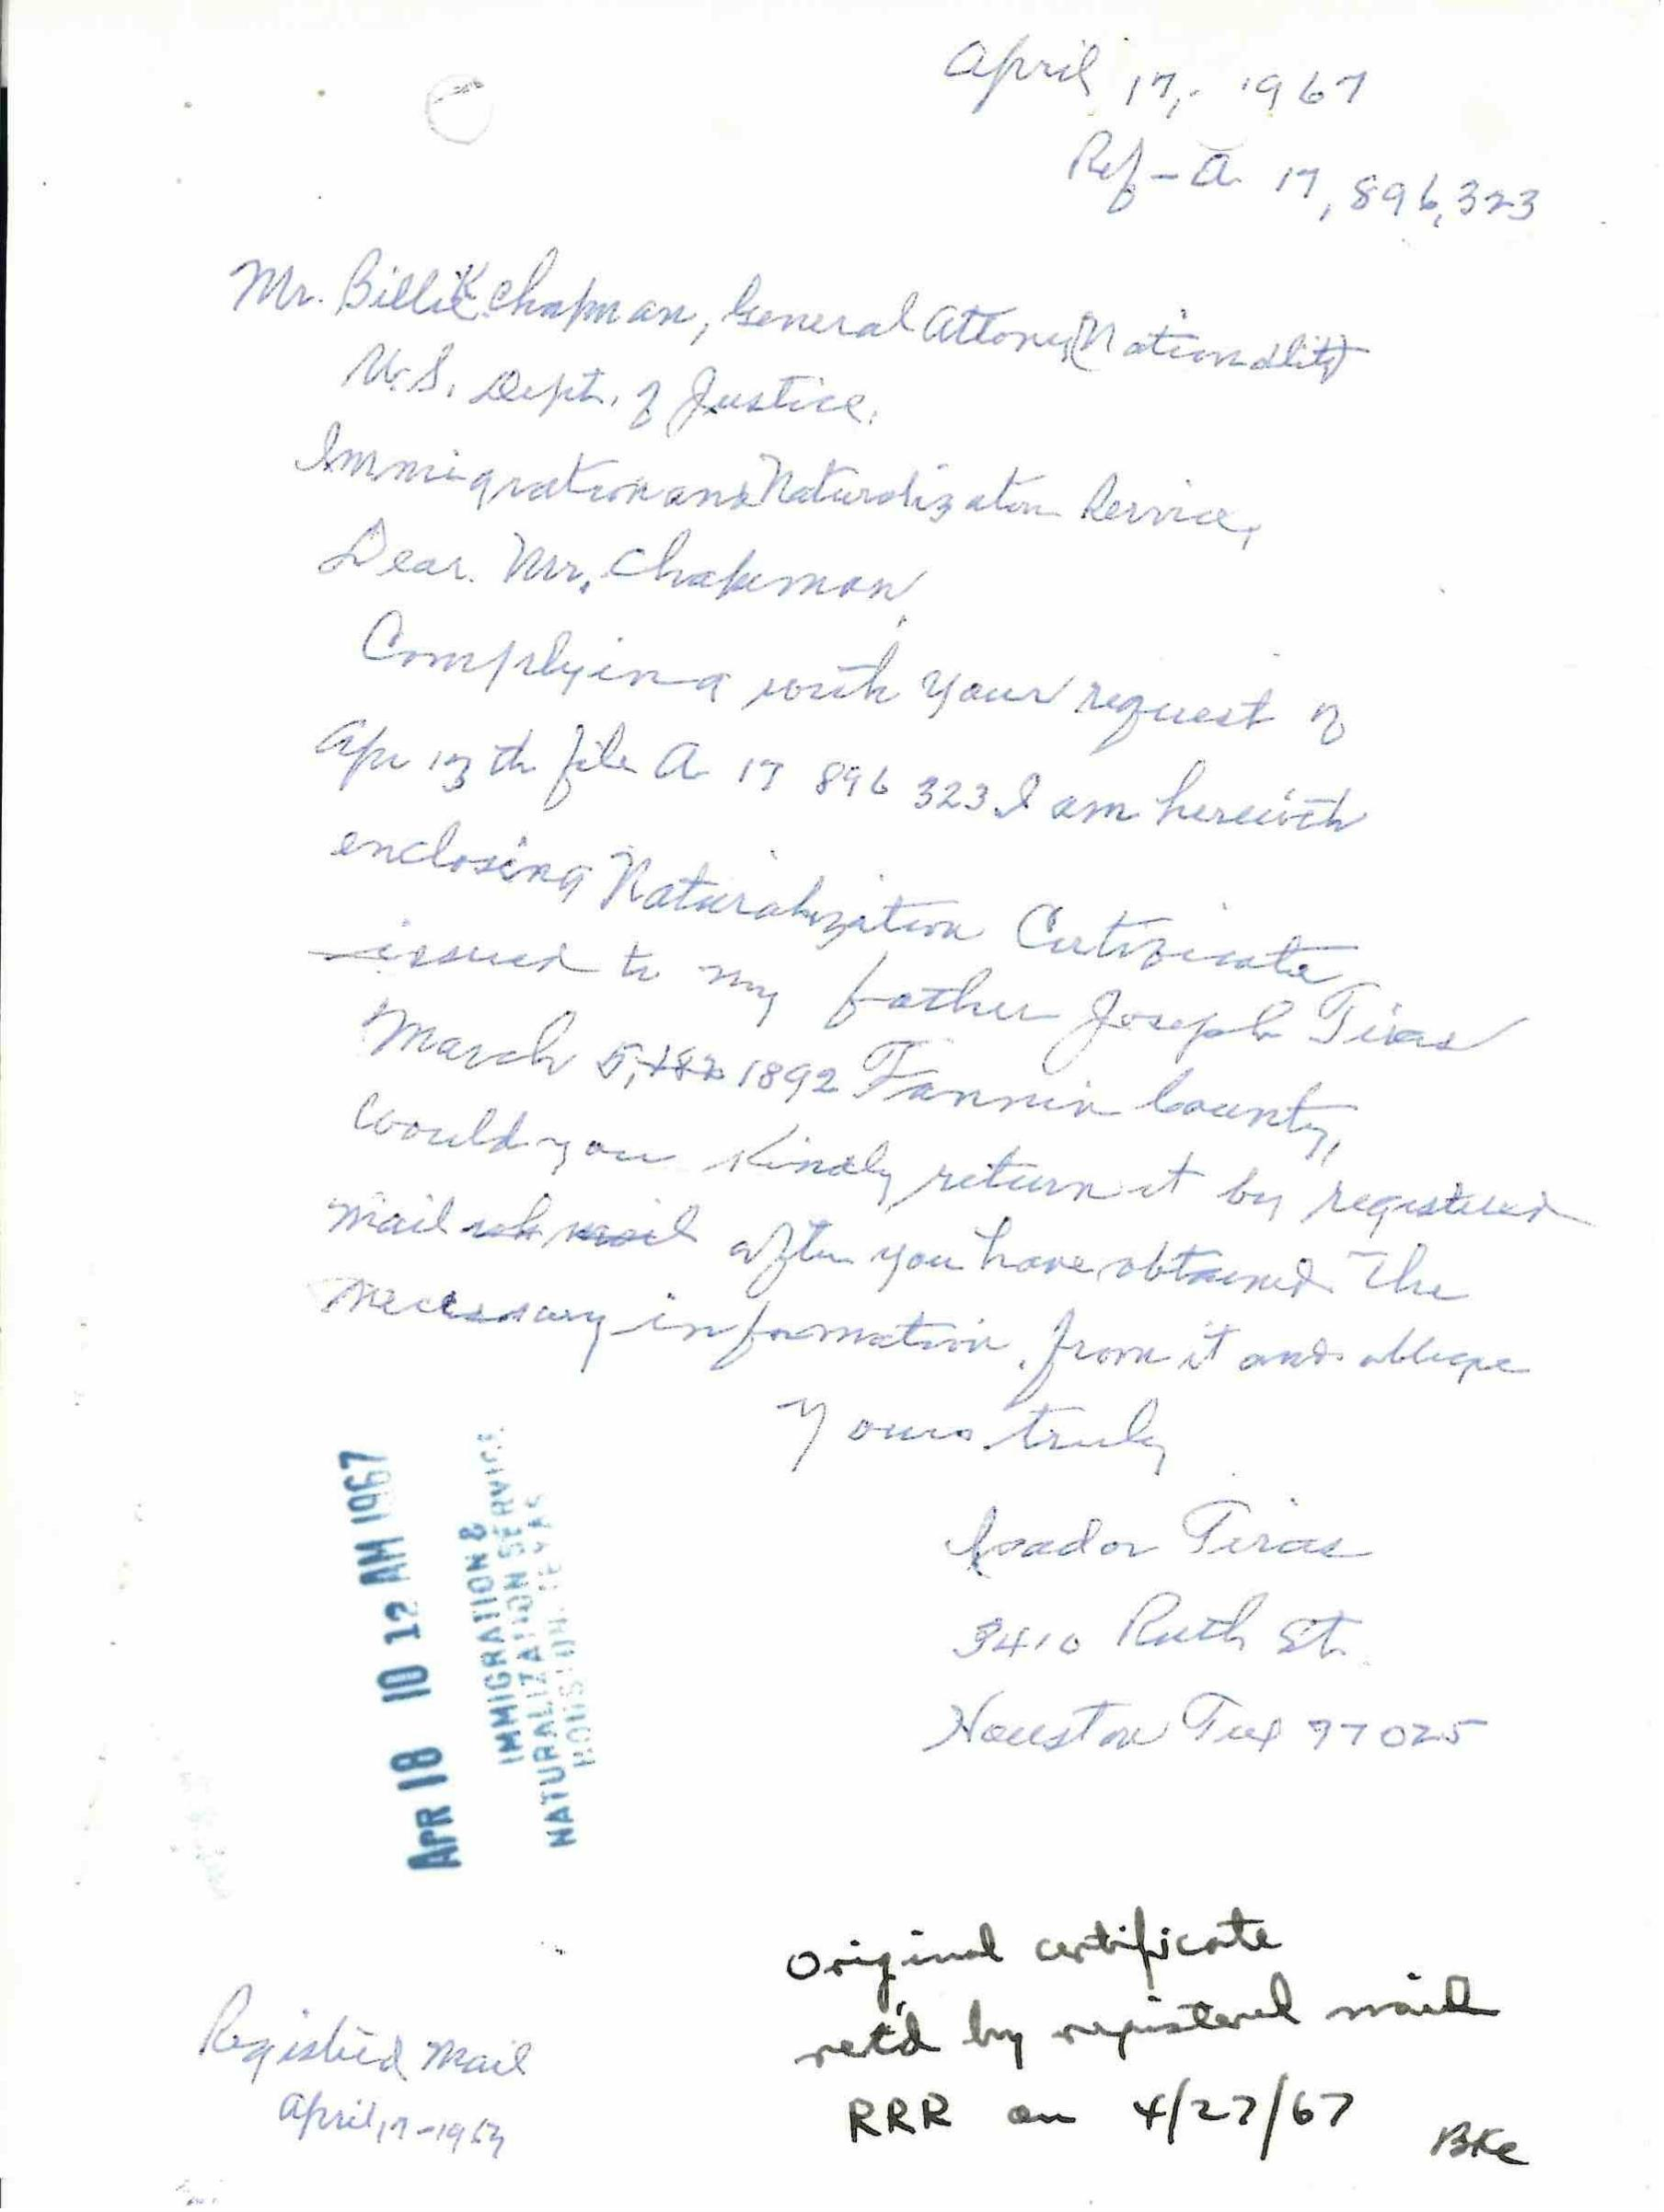 April 17, - 1967
Ref - A 17,896,323
Mr. Billie K Chapman, General Attorney (Nationality)
U.S. Dept. of Justice.
Immigration and Naturalizaton Service,
Dear Mr. Chapman,
Complying with your request of
Apr 13th file A 17 896 323 I am herewith
enclosing Naturalization Certificate
issued to my father Joseph Tiras
March 5, 1892 Fannin County,
Would you kindly return it by registered
mail after you have obtained the
necessary information from it and oblige
Yours truly
Isador Tiras
3410 Ruth St.
Houston Tex 77025
APR 18 10 12 AM 1967
IMMIGRATION &
NATURALIZATION SERVICE
HOUSTON, TEXAS
Registered Mail
April 17 - 1967
Original certificate
ret'd by registered mail
RRR on 4/27/67
BKC